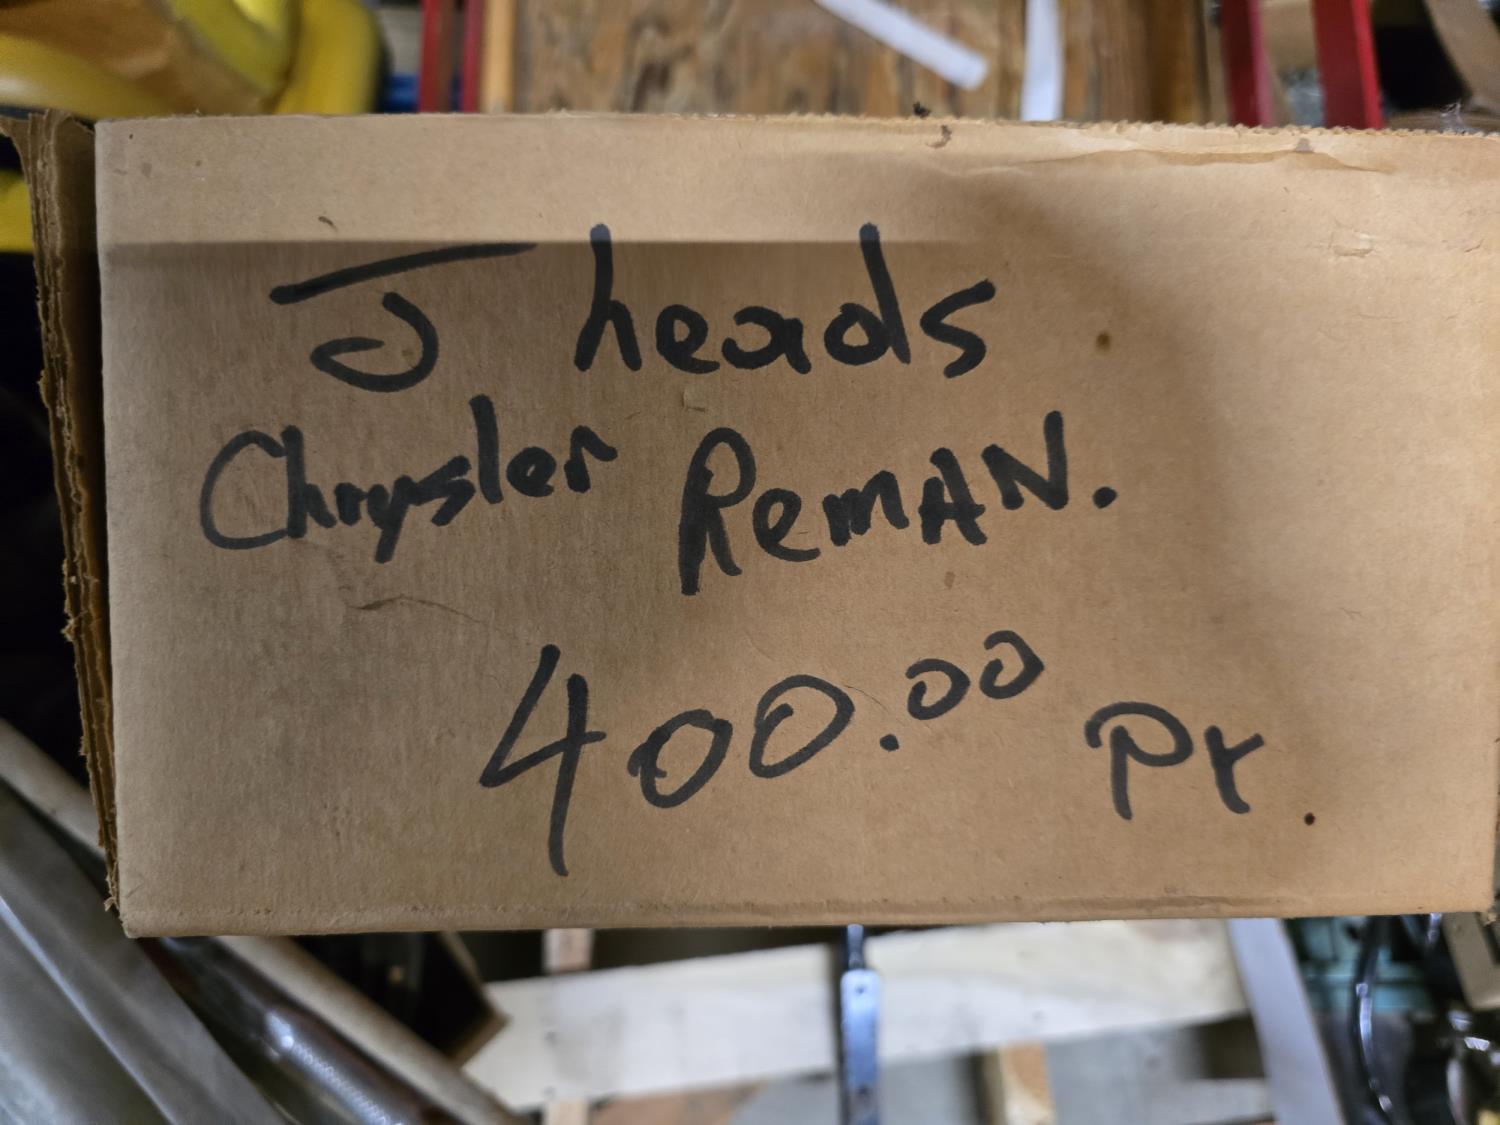 J heads
Chrysler Reman.
400.00 Pr.